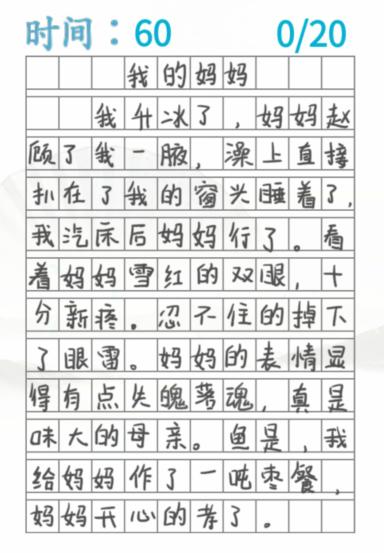 时间：60 0/20
我的妈妈
我升冰了，妈妈赵
顾了我一腋，澡上直接
扒在了我的窗头睡着了，
我汔床后妈妈行了。看
着妈妈雪红的双眼，十
分新疼。忍不住的掉下
了眼雷。妈妈的表情显
得有点失魄落魂，真是
味大的母亲。鱼是，我
给妈妈作了一吨枣餐，
妈妈开心的孝了。